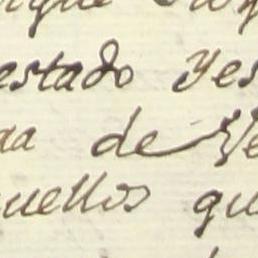 estado yes
da de Ve
uellos qu